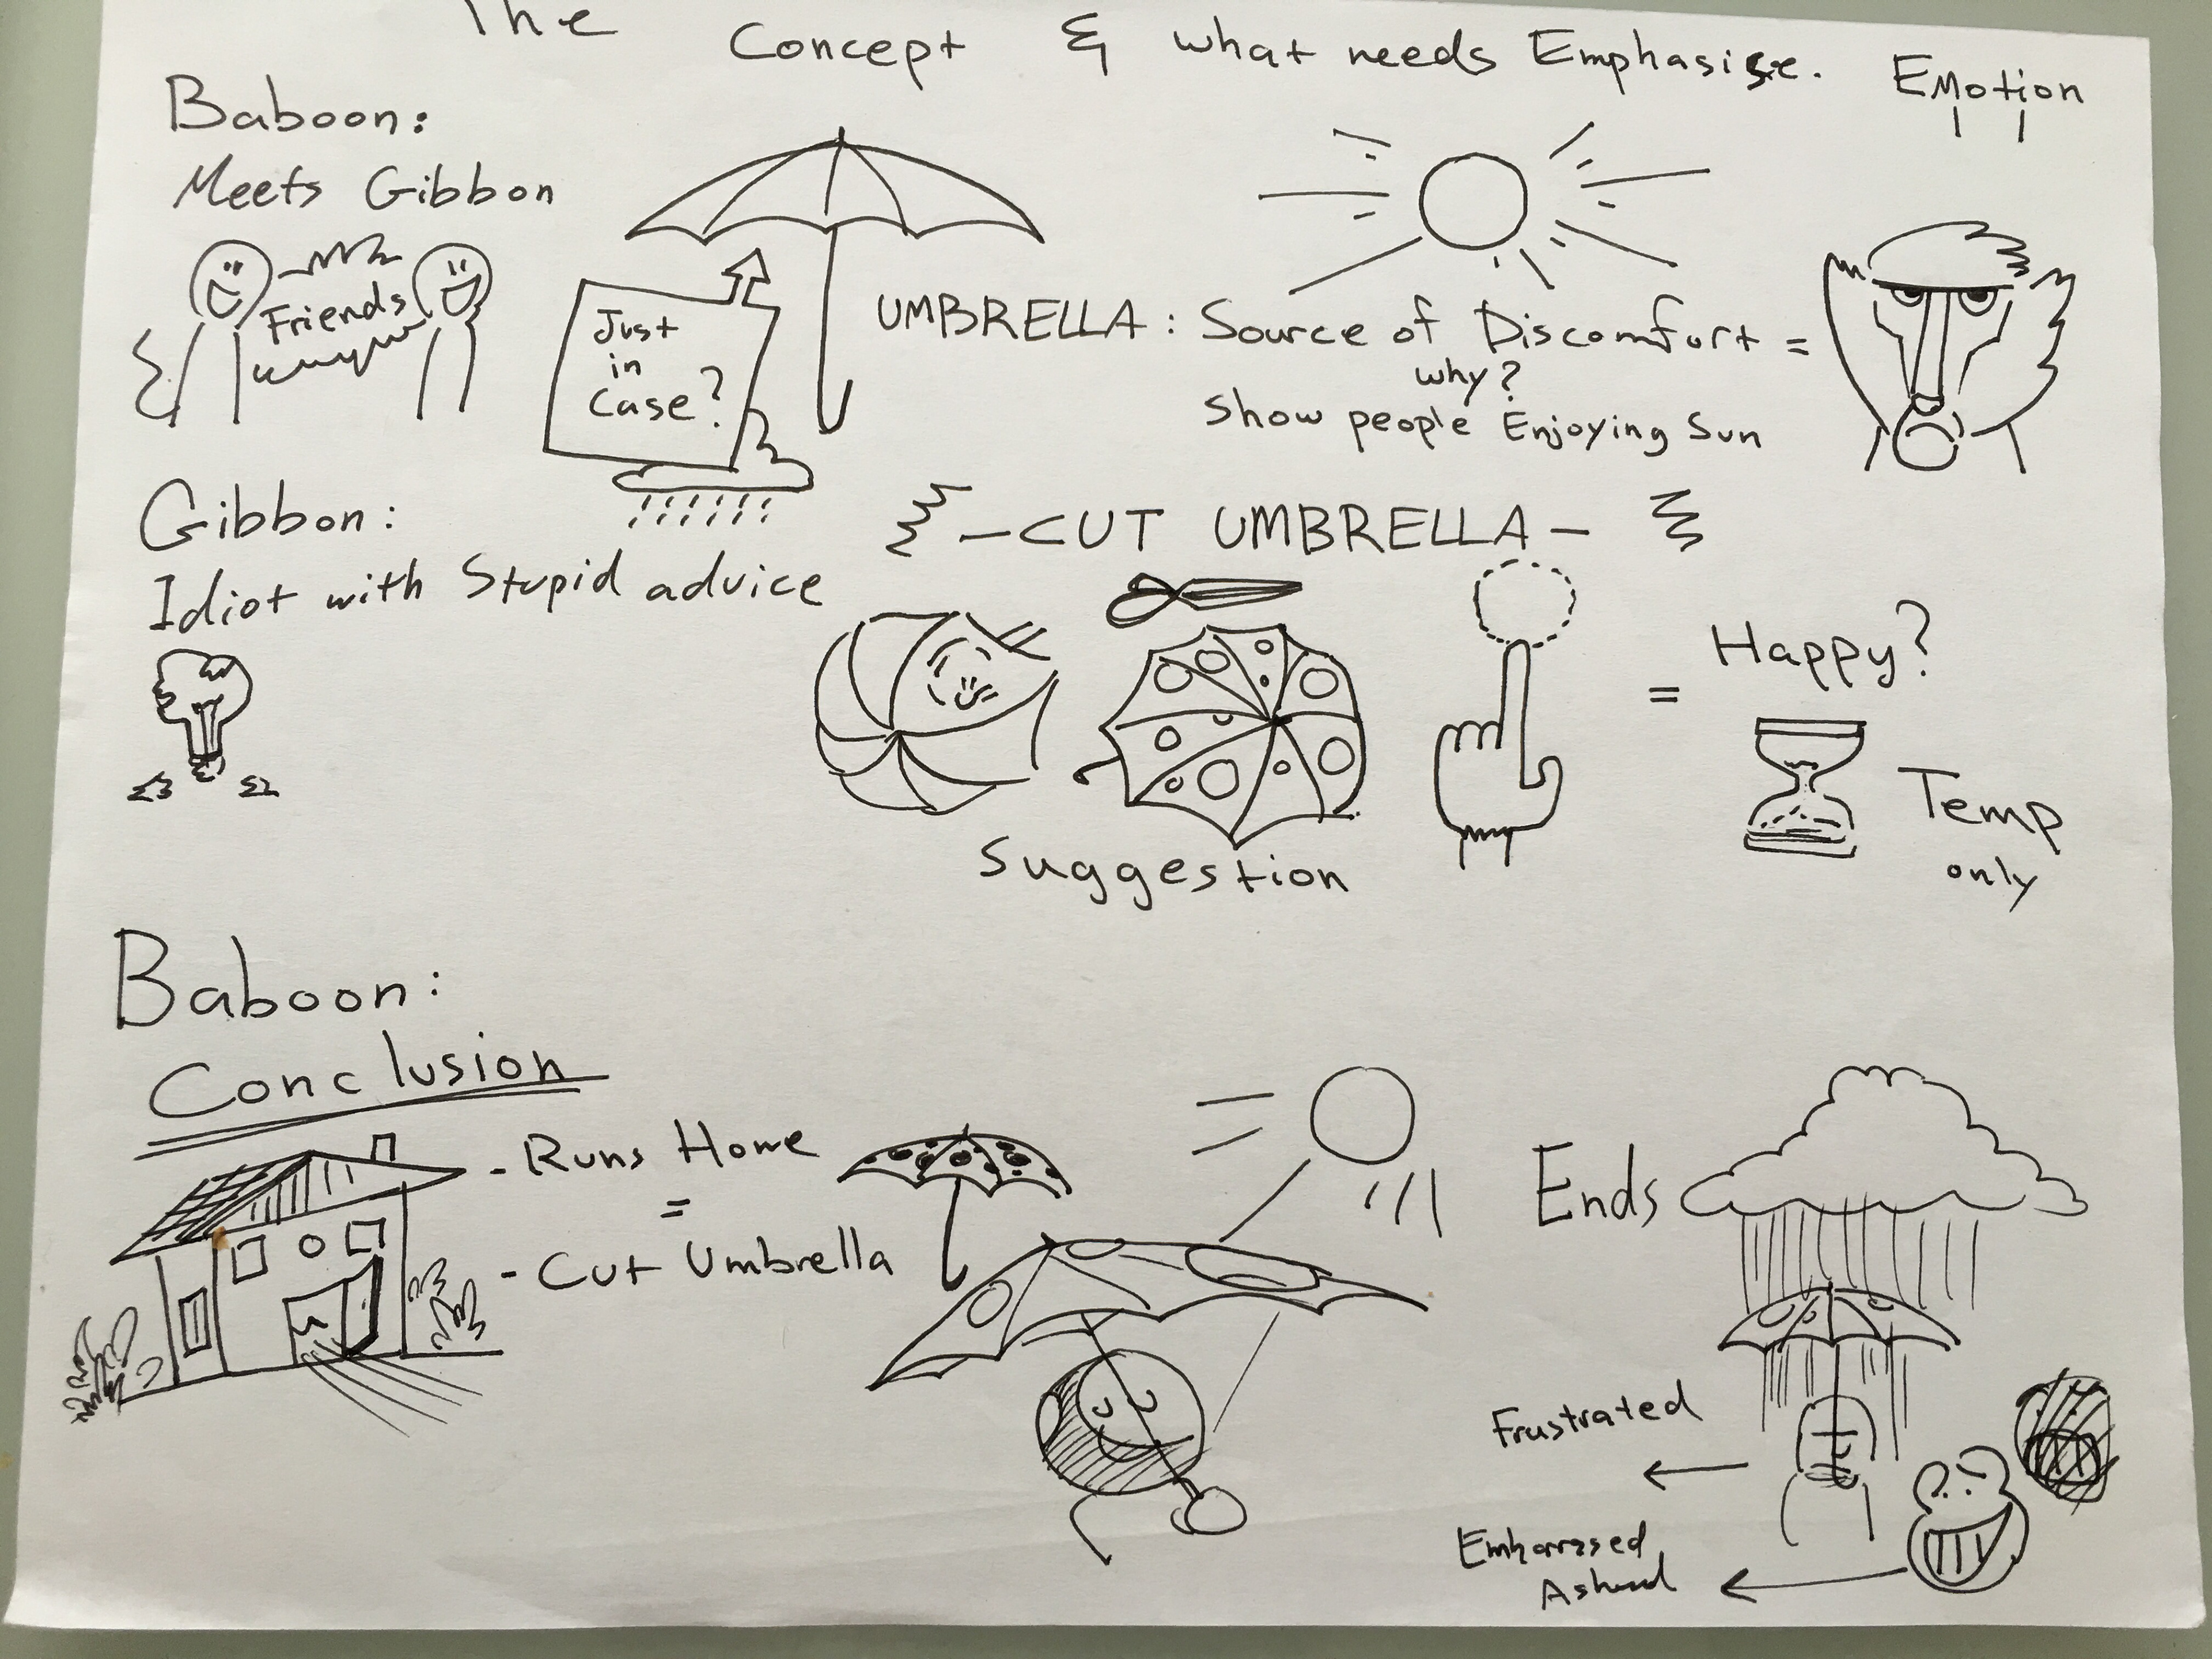 The Concept & what needs Emphasise. Emotion
Baboon:
Meets Gibbon
Friends
Just
in
Case?
UMBRELLA: Source of Discomfort =
why?
Show people Enjoying Sun
Gibbon:
Idiot with Stupid advice
-CUT UMBRELLA-
= Happy?
Temp
only
Suggestion
Baboon:
Conclusion
- Runs Home
=
- Cut Umbrella
Ends
Frustrated
Embarrased